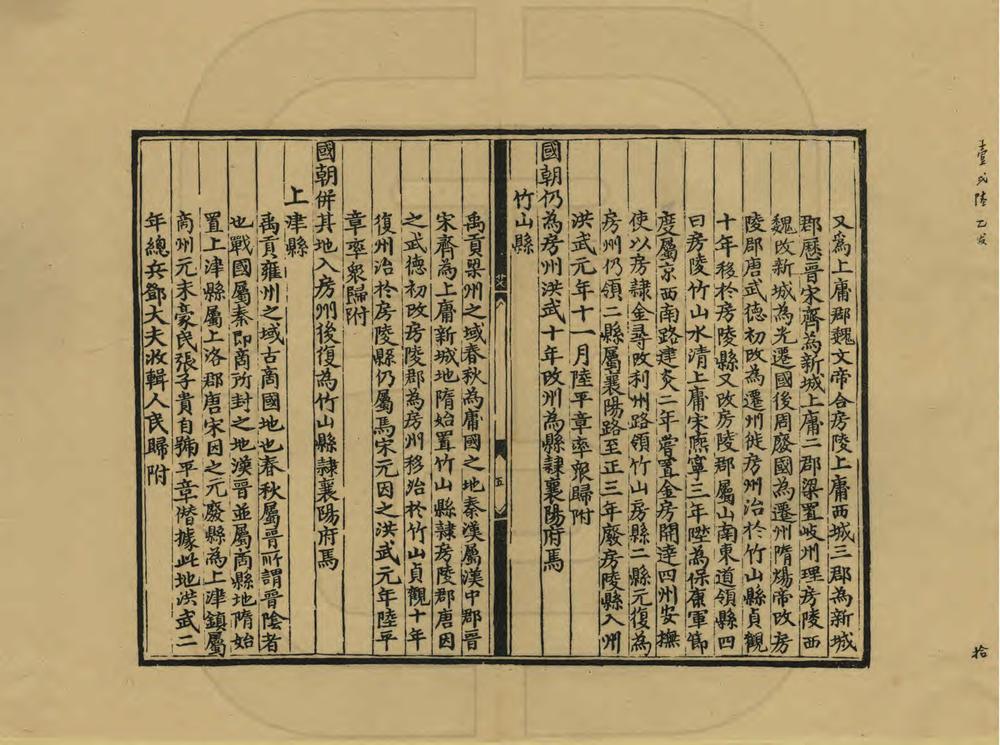 又為上庸郡魏文帝合房陵上庸西城三郡為新城
郡歷晉宋齊為新城上庸二郡梁置岐州理房陵西
魏改新城為光遷國後周廢國為遷州隋煬帝改房
陵郡唐武德初改為遷州徙房州治於竹山縣貞觀
十年移於房陵縣又改房陵郡屬山南東道領縣四
曰房陵竹山水清上庸宋熈寧三年陞為保康軍節
度屬京西南路建炎二年嘗置金房開逹四州安撫
使以房隸金尋改利州路領竹山房縣二縣元復為
房州仍領二縣屬襄陽路至正三年廢房陵縣入州
洪武元年十一月陸平章率衆歸附
國朝仍為房州洪武十年改州為縣隷襄陽府焉
竹山縣
禹貢梁州之域春秋為庸國之地秦漢屬漢中郡晉
宋齊為上庸新城地隋始置竹山縣隷房陵郡唐因
之武德初改房陵郡為房州移治於竹山貞觀十年
復州治於房陵縣仍屬焉宋元因之洪武元年陸平
章率衆歸附
國朝併其地入房州後復為竹山縣隷襄陽府焉
上津縣
禹貢雍州之域古商國地也春秋屬晉所謂晉陰者
也戰國屬秦即商所封之地漢晉並屬商縣地隋始
置上津縣屬上洛郡唐宋因之元廢縣為上津鎮屬
商州元末豪民張子貴自號平章僣據此地洪武二
年總兵鄧大夫收輯人民歸附
五
拾